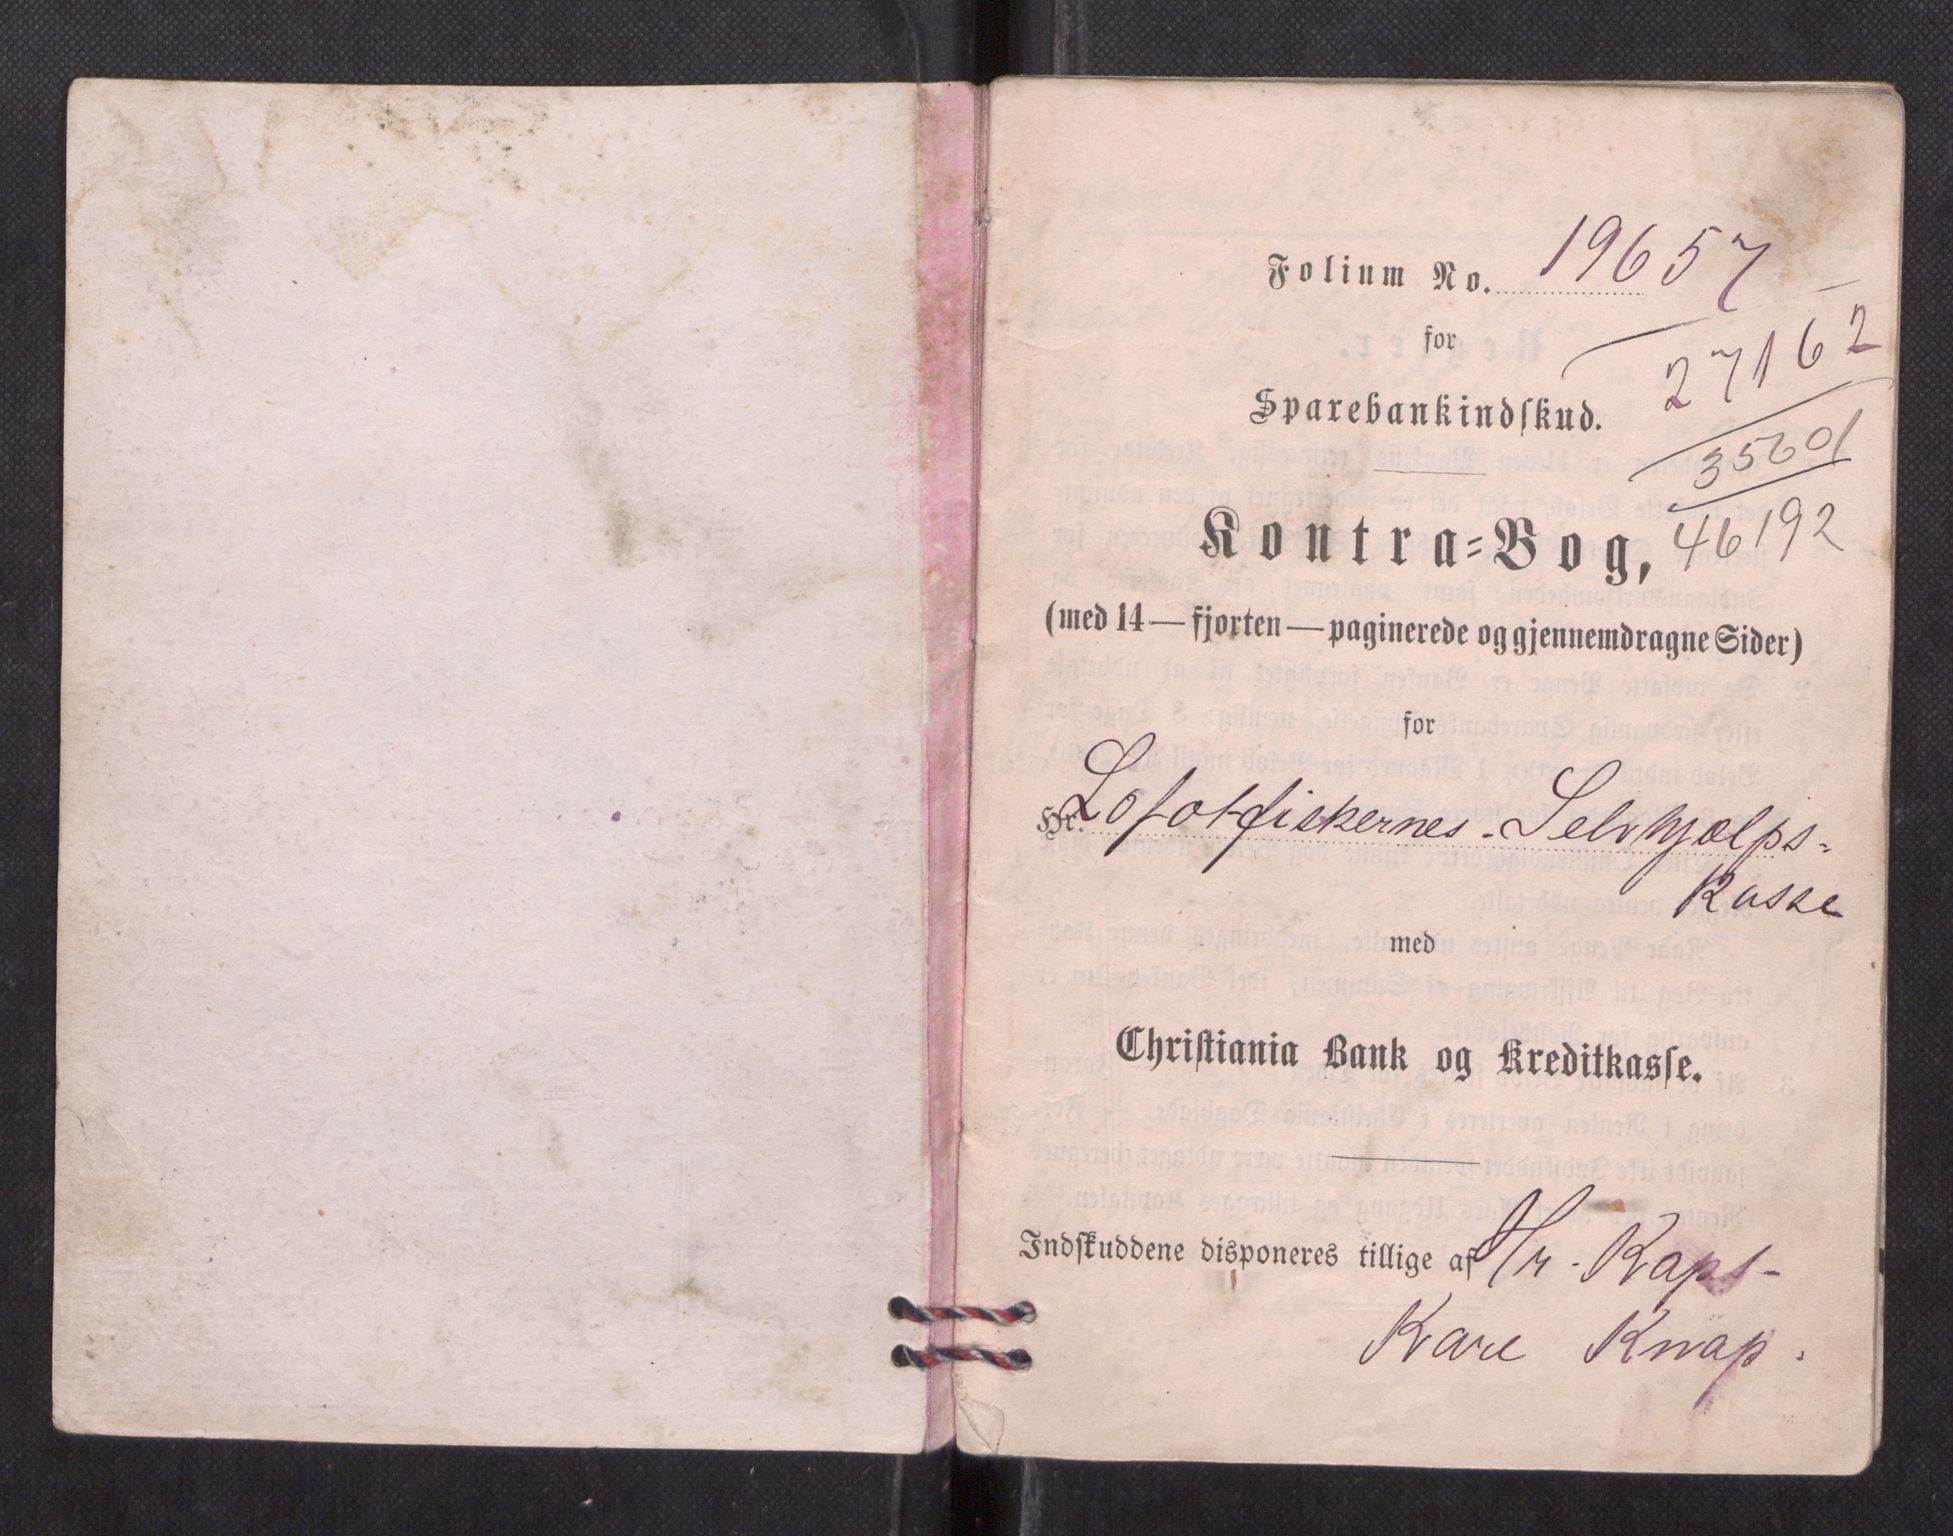 Folium No. 19657
for
27162
Sparebankindskud.
35601
Kontra-Bog, 46192
(med 14 — fjorten — paginerede og gjennemdragne Sider)
for
Hr. Lofotfiskernes. Selvhjælps-
Kasse
med
Christiania Bank og Kreditkasse.
Indskuddene disponeres tillige af Hr. Kapt-
Kare Knap.